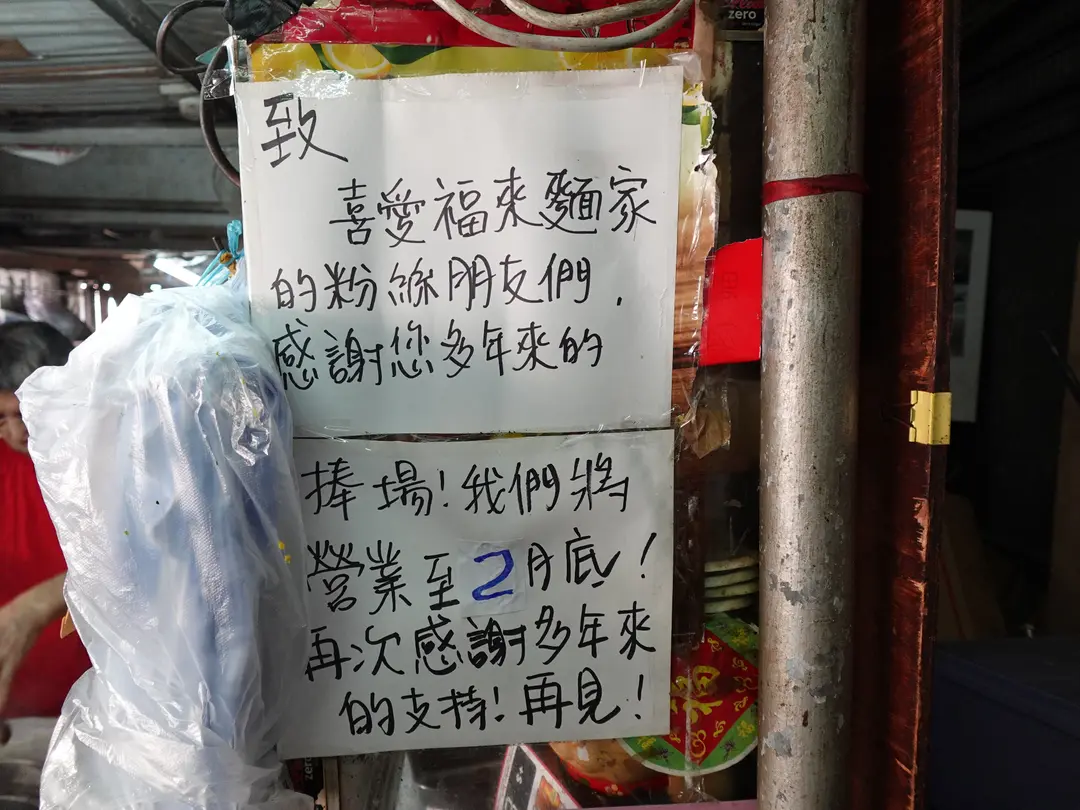 zero
致
喜愛福來麵家
的粉絲朋友們.
感謝您多年來的
捧場!我們將
營業至2月底!
再次感謝多年來
的支持!再見!